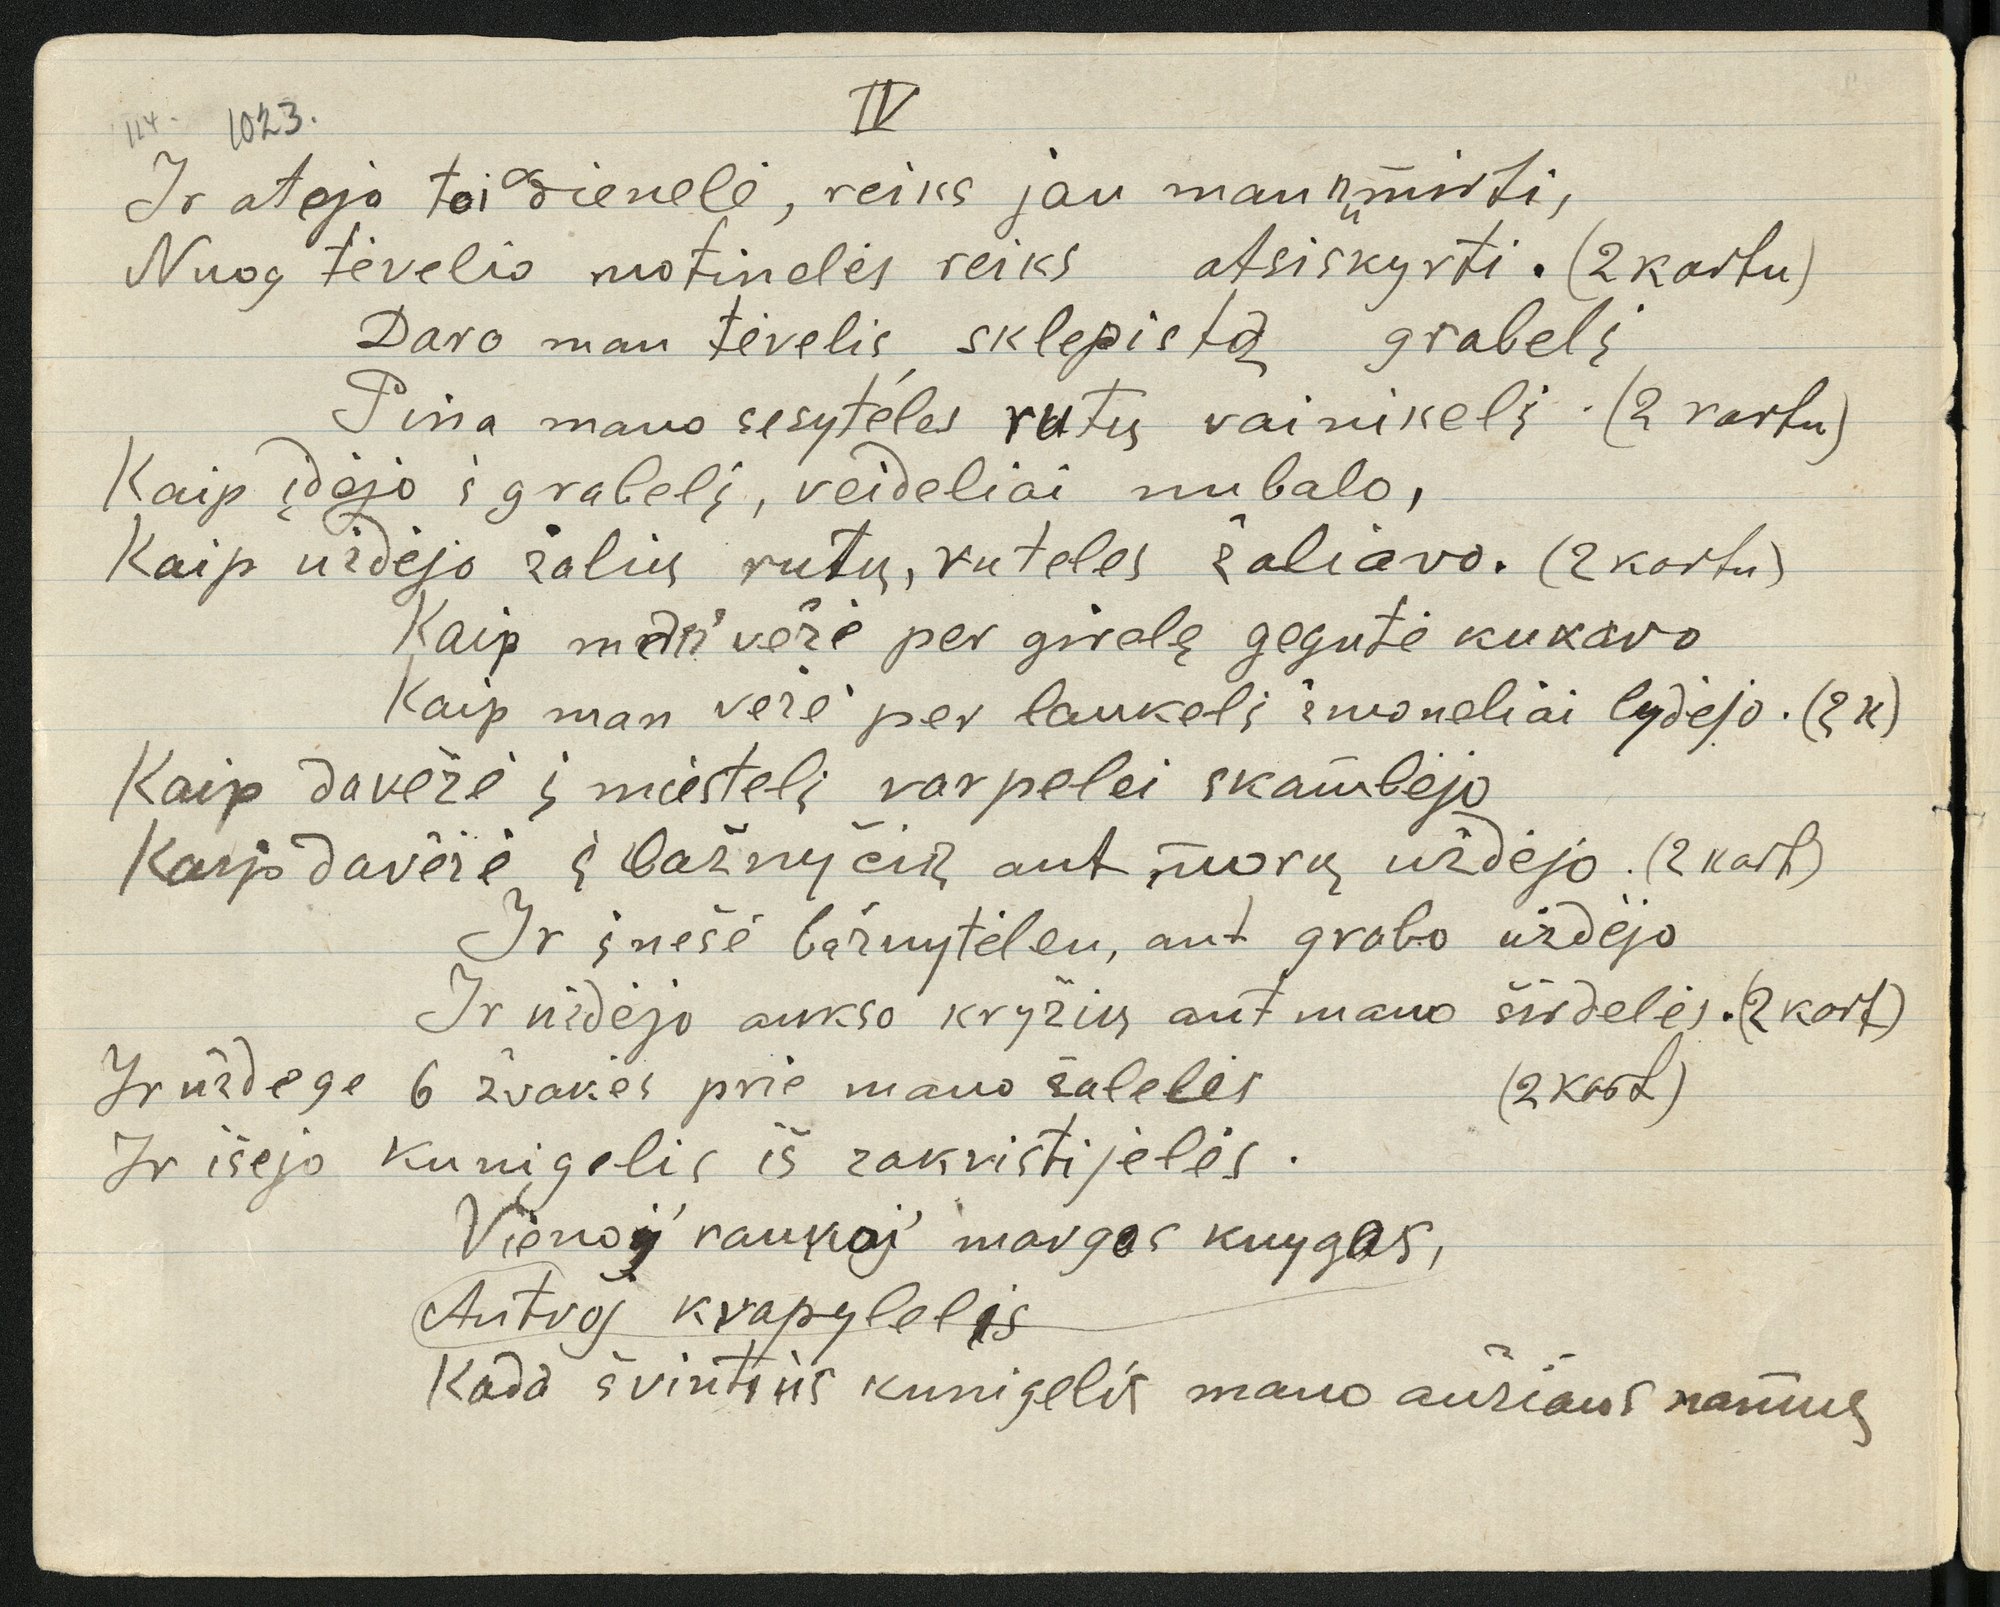 IV
114. 1023.
Ir atejo toi dienelė, reiks jau man numirti,
Nuog tėvelio motinelės reiks atsiskyrti. (2 kartu)
Daro man tėvelis sklepistą grabelį
Pina mano sesytėles rutų vainikelį. (2 kartu)
Kaip įdėjo į grabelį, veideliai nubalo,
Kaip uždėjo žalių rutų, ruteles žaliavo. (2 kartu)
Kaip man vėžė per girelę gegutė kukavo
Kaip man vėžė per laukelį žmoneliai lydėjo. (2 k)
Kaip davėžė į miestelį varpelei skambėjo
Kaip davėžė į bažnyčią ant morų uždėjo. (2 kart)
Ir įnešė bažnytėlen, ant grabo uždėjo
Ir uždėjo aukso kryžių ant mano širdelės. (2 kart)
Ir uždege 6 žvakės prie mano šalelės (2 kart)
Ir išejo kunigelis iš zakristijelės.
Vienoj rankoj margos knygos,
Antroj kvapylelis
Kada švintiis kunigelis mano aužiaus namus